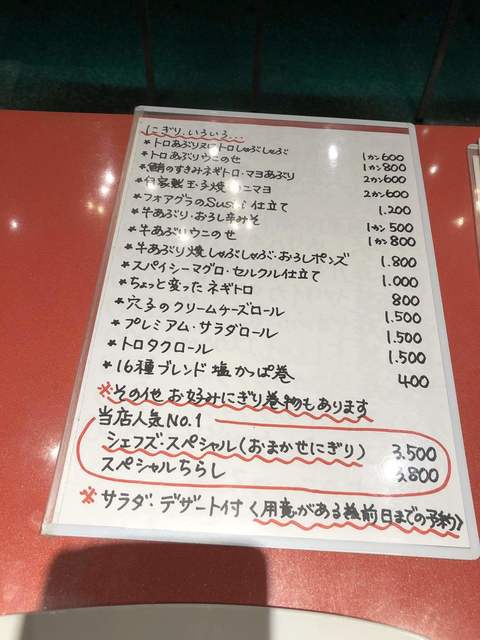 にぎり、いろいろ…
* トロあぶり又はトロしゃぶしゃぶ 1カン600
* トロあぶりウニのせ 1カン800
* 鮪のすきみネギトロ・マヨあぶり 2カン600
* 自家製玉子焼ウニマヨ 2カン600
* フォアグラのSushi仕立て 1.200
* 牛あぶり・おろし辛みそ 1カン500
* 牛あぶりウニのせ 1カン800
* 牛あぶり焼しゃぶしゃぶ・おろしポンズ 1.800
* スパイシーマグロ・セルクル仕立て 1.000
* ちょっと変ったネギトロ 800
* 穴子のクリームチーズロール 1.500
* プレミアム・サラダロール 1.500
* トロタクロール 1.500
* 16種ブレンド塩かっぱ巻 400
※その他お好みにぎり巻物もあります
当店人気No.1
シェフズ・スペシャル(おまかせにぎり) 3.500
スペシャルちらし 3.800
※サラダ・デザート付〈用意がある為前日までの予約〉